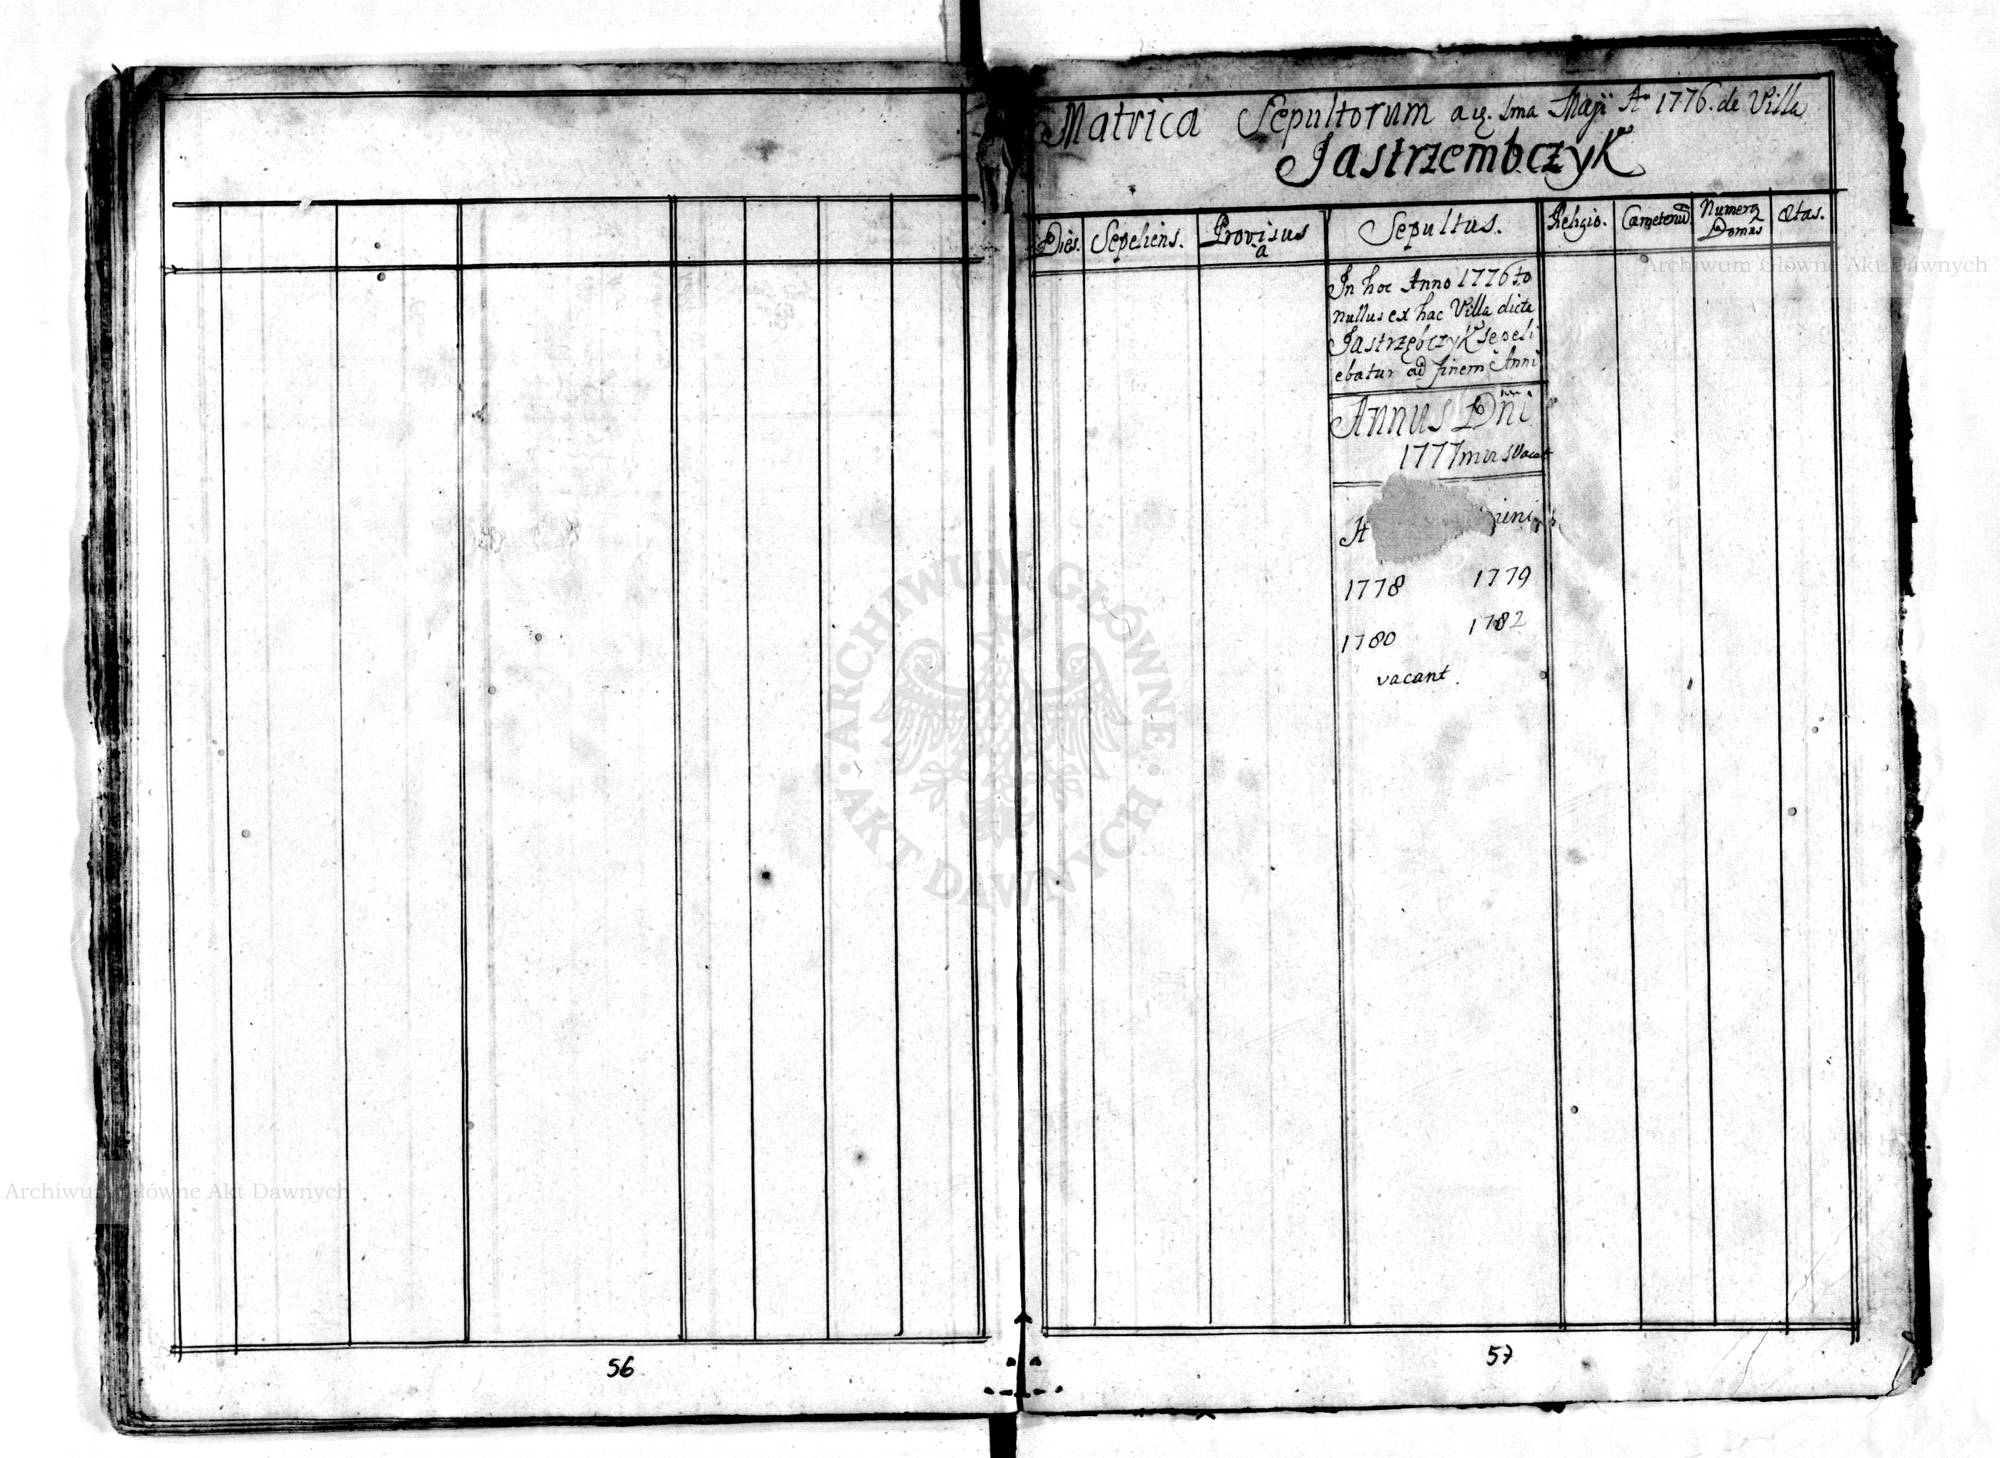 Matrica Sepultorum a 1ma Maji Ao 1776. de Villa
Jastrzembczyk
Dies. Sepeliens. Provisus a Sepultus. Religio. Cœmeterium Numerq Domus Œtas.
In hoc Anno 1776to
nullus ex hac Villa dicta
Jastrzębczyk sepeli
ebatur ad finem Anni
Annus Dñi
1777mus vacat
A
1778 1779
1780 1782
vacant.
56
57
Archiwum Główne Akt Dawnych
Archiwum Główne Akt Dawnych
ARCHIWUM GŁÓWNE
AKT DAWNYCH